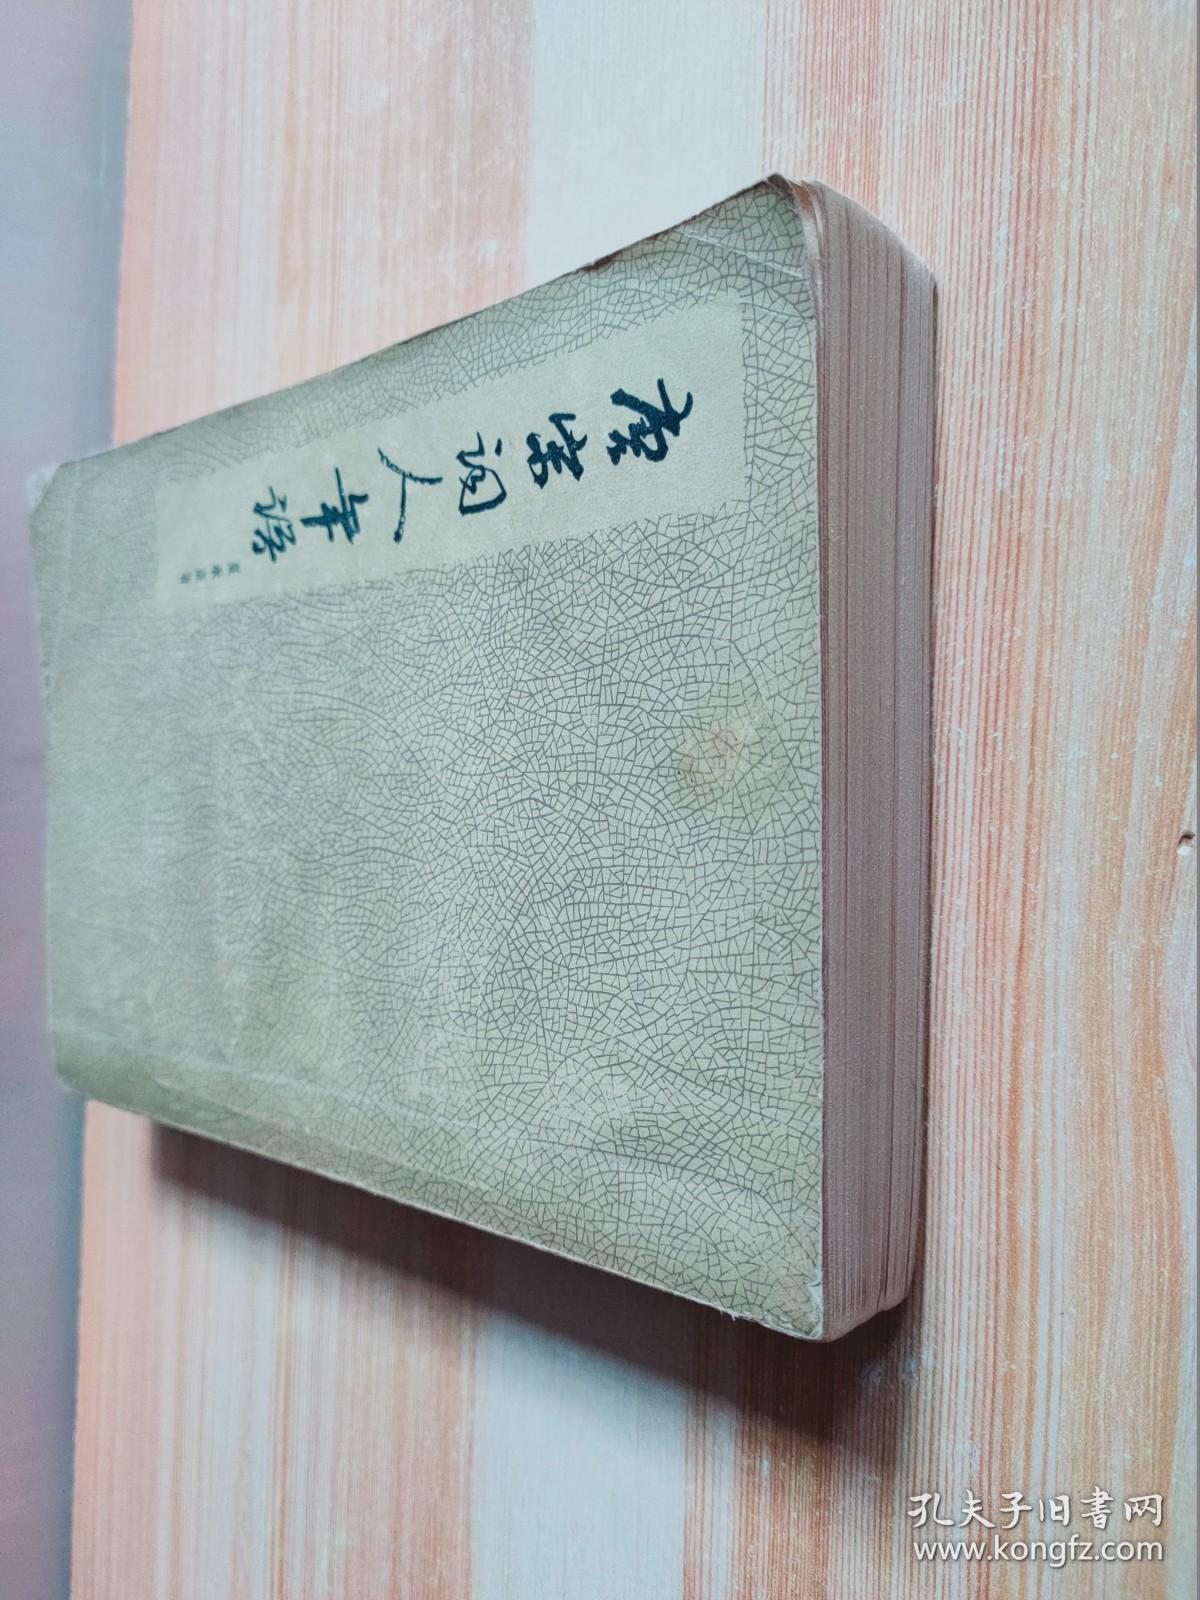 唐宋词人年谱
夏承焘著
孔夫子旧书网
www.kongfz.com